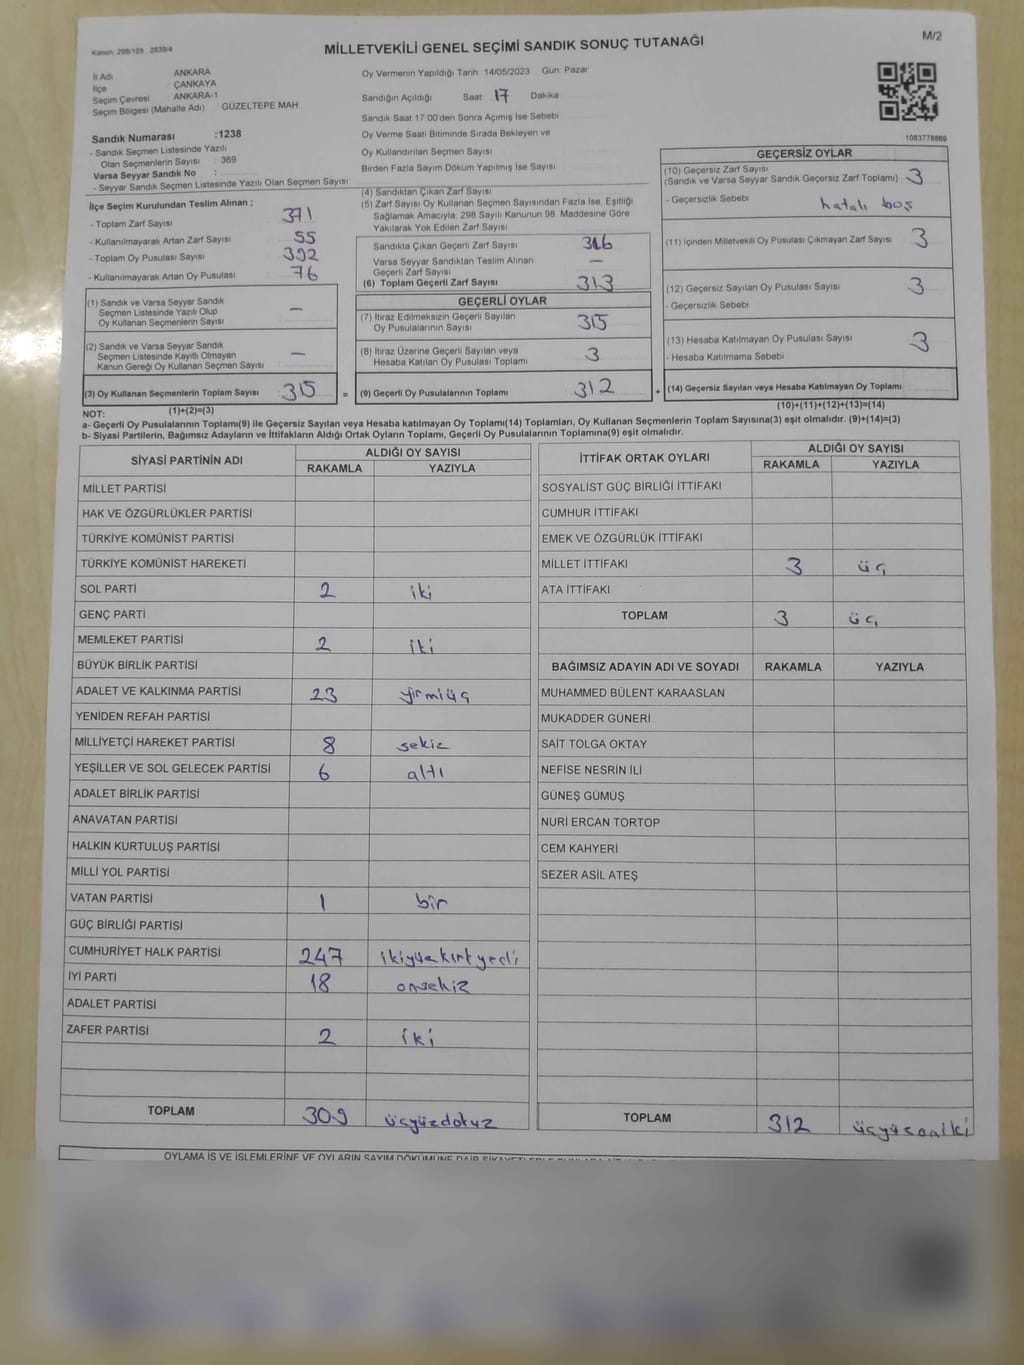 Kanun: 298/105 , 2839/4
MİLLETVEKİLİ GENEL SEÇİMİ SANDIK SONUÇ TUTANAĞI
M/2
İl Adı ANKARA
İlçe ÇANKAYA
Seçim Çevresi ANKARA-1
Seçim Bölgesi (Mahalle Adı) GÜZELTEPE MAH
Sandık Numarası :1238
- Sandık Seçmen Listesinde Yazılı
Olan Seçmenlerin Sayısı : 369
Varsa Seyyar Sandık No :
- Seyyar Sandık Seçmen Listesinde Yazılı Olan Seçmen Sayısı:
Oy Vermenin Yapıldığı Tarih 14/05/2023 Gün: Pazar
Sandığın Açıldığı Saat 17 Dakika
Sandık Saat 17.00'den Sonra Açımış İse Sebebi
Oy Verme Saati Bitiminde Sırada Bekleyen ve
Oy Kullandırılan Seçmen Sayısı
Birden Fazla Sayım Döküm Yapılmış İse Sayısı
1083778869
İlçe Seçim Kurulundan Teslim Alınan ;
- Toplam Zarf Sayısı 371
- Kullanılmayarak Artan Zarf Sayısı 55
- Toplam Oy Pusulası Sayısı 392
- Kullanılmayarak Artan Oy Pusulası 76
(1) Sandık ve Varsa Seyyar Sandık
Seçmen Listesinde Yazılı Olup
Oy Kullanan Seçmenlerin Sayısı —
(2) Sandık ve Varsa Seyyar Sandık
Seçmen Listesinde Kayıtlı Olmayan
Kanun Gereği Oy Kullanan Seçmen Sayısı —
(3) Oy Kullanan Seçmenlerin Toplam Sayısı 315 =
(1)+(2)=(3)
(4) Sandıktan Çıkan Zarf Sayısı
(5) Zarf Sayısı Oy Kullanan Seçmen Sayısından Fazla İse, Eşitliği
Sağlamak Amacıyla; 298 Sayılı Kanunun 98. Maddesine Göre
Yakılarak Yok Edilen Zarf Sayısı
Sandıkta Çıkan Geçerli Zarf Sayısı 316
Varsa Seyyar Sandıktan Teslim Alınan
Geçerli Zarf Sayısı —
(6) Toplam Geçerli Zarf Sayısı 313
GEÇERLİ OYLAR
(7) İtiraz Edilmeksizin Geçerli Sayılan
Oy Pusulalarının Sayısı 315
(8) İtiraz Üzerine Geçerli Sayılan veya
Hesaba Katılan Oy Pusulası Toplamı 3
(9) Geçerli Oy Pusulalarının Toplamı 312 +
GEÇERSİZ OYLAR
(10) Geçersiz Zarf Sayısı
(Sandık ve Varsa Seyyar Sandık Geçersiz Zarf Toplamı) 3
- Geçersizlik Sebebi hatalı boş
(11) İçinden Milletvekili Oy Pusulası Çıkmayan Zarf Sayısı 3
(12) Geçersiz Sayılan Oy Pusulası Sayısı 3
- Geçersizlik Sebebi
(13) Hesaba Katılmayan Oy Pusulası Sayısı 3
- Hesaba Katılmama Sebebi
(14) Geçersiz Sayılan veya Hesaba Katılmayan Oy Toplamı
(10)+(11)+(12)+(13)=(14)
NOT:
a- Geçerli Oy Pusulalarının Toplamı(9) ile Geçersiz Sayılan veya Hesaba katılmayan Oy Toplamı(14) Toplamları, Oy Kullanan Seçmenlerin Toplam Sayısına(3) eşit olmalıdır. (9)+(14)=(3)
b- Siyasi Partilerin, Bağımsız Adayların ve İttifakların Aldığı Ortak Oyların Toplamı, Geçerli Oy Pusulalarının Toplamına(9) eşit olmalıdır.
SİYASİ PARTİNİN ADI ALDIĞI OY SAYISI
RAKAMLA YAZIYLA
MİLLET PARTİSİ
HAK VE ÖZGÜRLÜKLER PARTİSİ
TÜRKİYE KOMÜNİST PARTİSİ
TÜRKİYE KOMÜNİST HAREKETİ
SOL PARTİ 2 iki
GENÇ PARTİ
MEMLEKET PARTİSİ 2 iki
BÜYÜK BİRLİK PARTİSİ
ADALET VE KALKINMA PARTİSİ 23 yirmiüç
YENİDEN REFAH PARTİSİ
MİLLİYETÇİ HAREKET PARTİSİ 8 sekiz
YEŞİLLER VE SOL GELECEK PARTİSİ 6 altı
ADALET BİRLİK PARTİSİ
ANAVATAN PARTİSİ
HALKIN KURTULUŞ PARTİSİ
MİLLİ YOL PARTİSİ
VATAN PARTİSİ 1 bir
GÜÇ BİRLİĞİ PARTİSİ
CUMHURİYET HALK PARTİSİ 247 ikiyüzkırkyedi
İYİ PARTİ 18 onsekiz
ADALET PARTİSİ
ZAFER PARTİSİ 2 iki
TOPLAM 309 üçyüzdokuz
İTTİFAK ORTAK OYLARI ALDIĞI OY SAYISI
RAKAMLA YAZIYLA
SOSYALİST GÜÇ BİRLİĞİ İTTİFAKI
CUMHUR İTTİFAKI
EMEK VE ÖZGÜRLÜK İTTİFAKI
MİLLET İTTİFAKI 3 üç
ATA İTTİFAKI
TOPLAM 3 üç
BAĞIMSIZ ADAYIN ADI VE SOYADI RAKAMLA YAZIYLA
MUHAMMED BÜLENT KARAASLAN
MUKADDER GÜNERİ
SAİT TOLGA OKTAY
NEFİSE NESRİN İLİ
GÜNEŞ GÜMÜŞ
NURİ ERCAN TORTOP
CEM KAHYERİ
SEZER ASİL ATEŞ
TOPLAM 312 üçyüzoniki
OYLAMA İŞ VE İŞLEMLERİNE VE OYLARIN SAYIM DÖKÜMÜNE DAİR